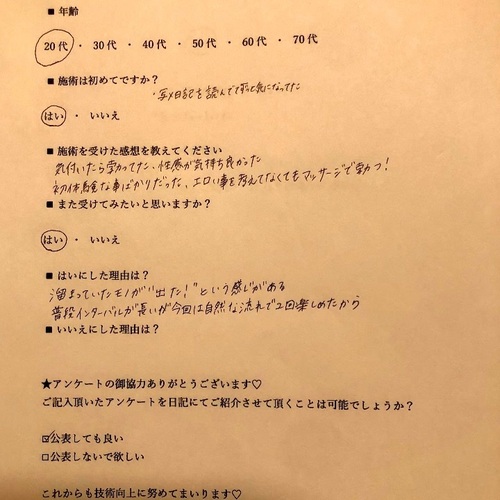 ■ 年齢
20代 ・ 30代 ・ 40代 ・ 50代 ・ 60代 ・ 70代
■ 施術は初めてですか?
・写メ日記を読んでずっと気になってた
はい ・ いいえ
■ 施術を受けた感想を教えてください
気付いたら勃ってた、性感が気持ち良かった
初体験な事ばかりだった、エロい事を考えてなくてもマッサージで勃つ!
■ また受けてみたいと思いますか?
はい ・ いいえ
■ はいにした理由は?
溜まっていたモノが"出た!"という感じがある
普段インターバルが長いが今回は自然な流れで2回楽しめたから
■ いいえにした理由は?
★アンケートの御協力ありがとうございます♡
ご記入頂いたアンケートを日記にてご紹介させて頂くことは可能でしょうか?
☑公表しても良い
□公表しないで欲しい
これからも技術向上に努めてまいります♡